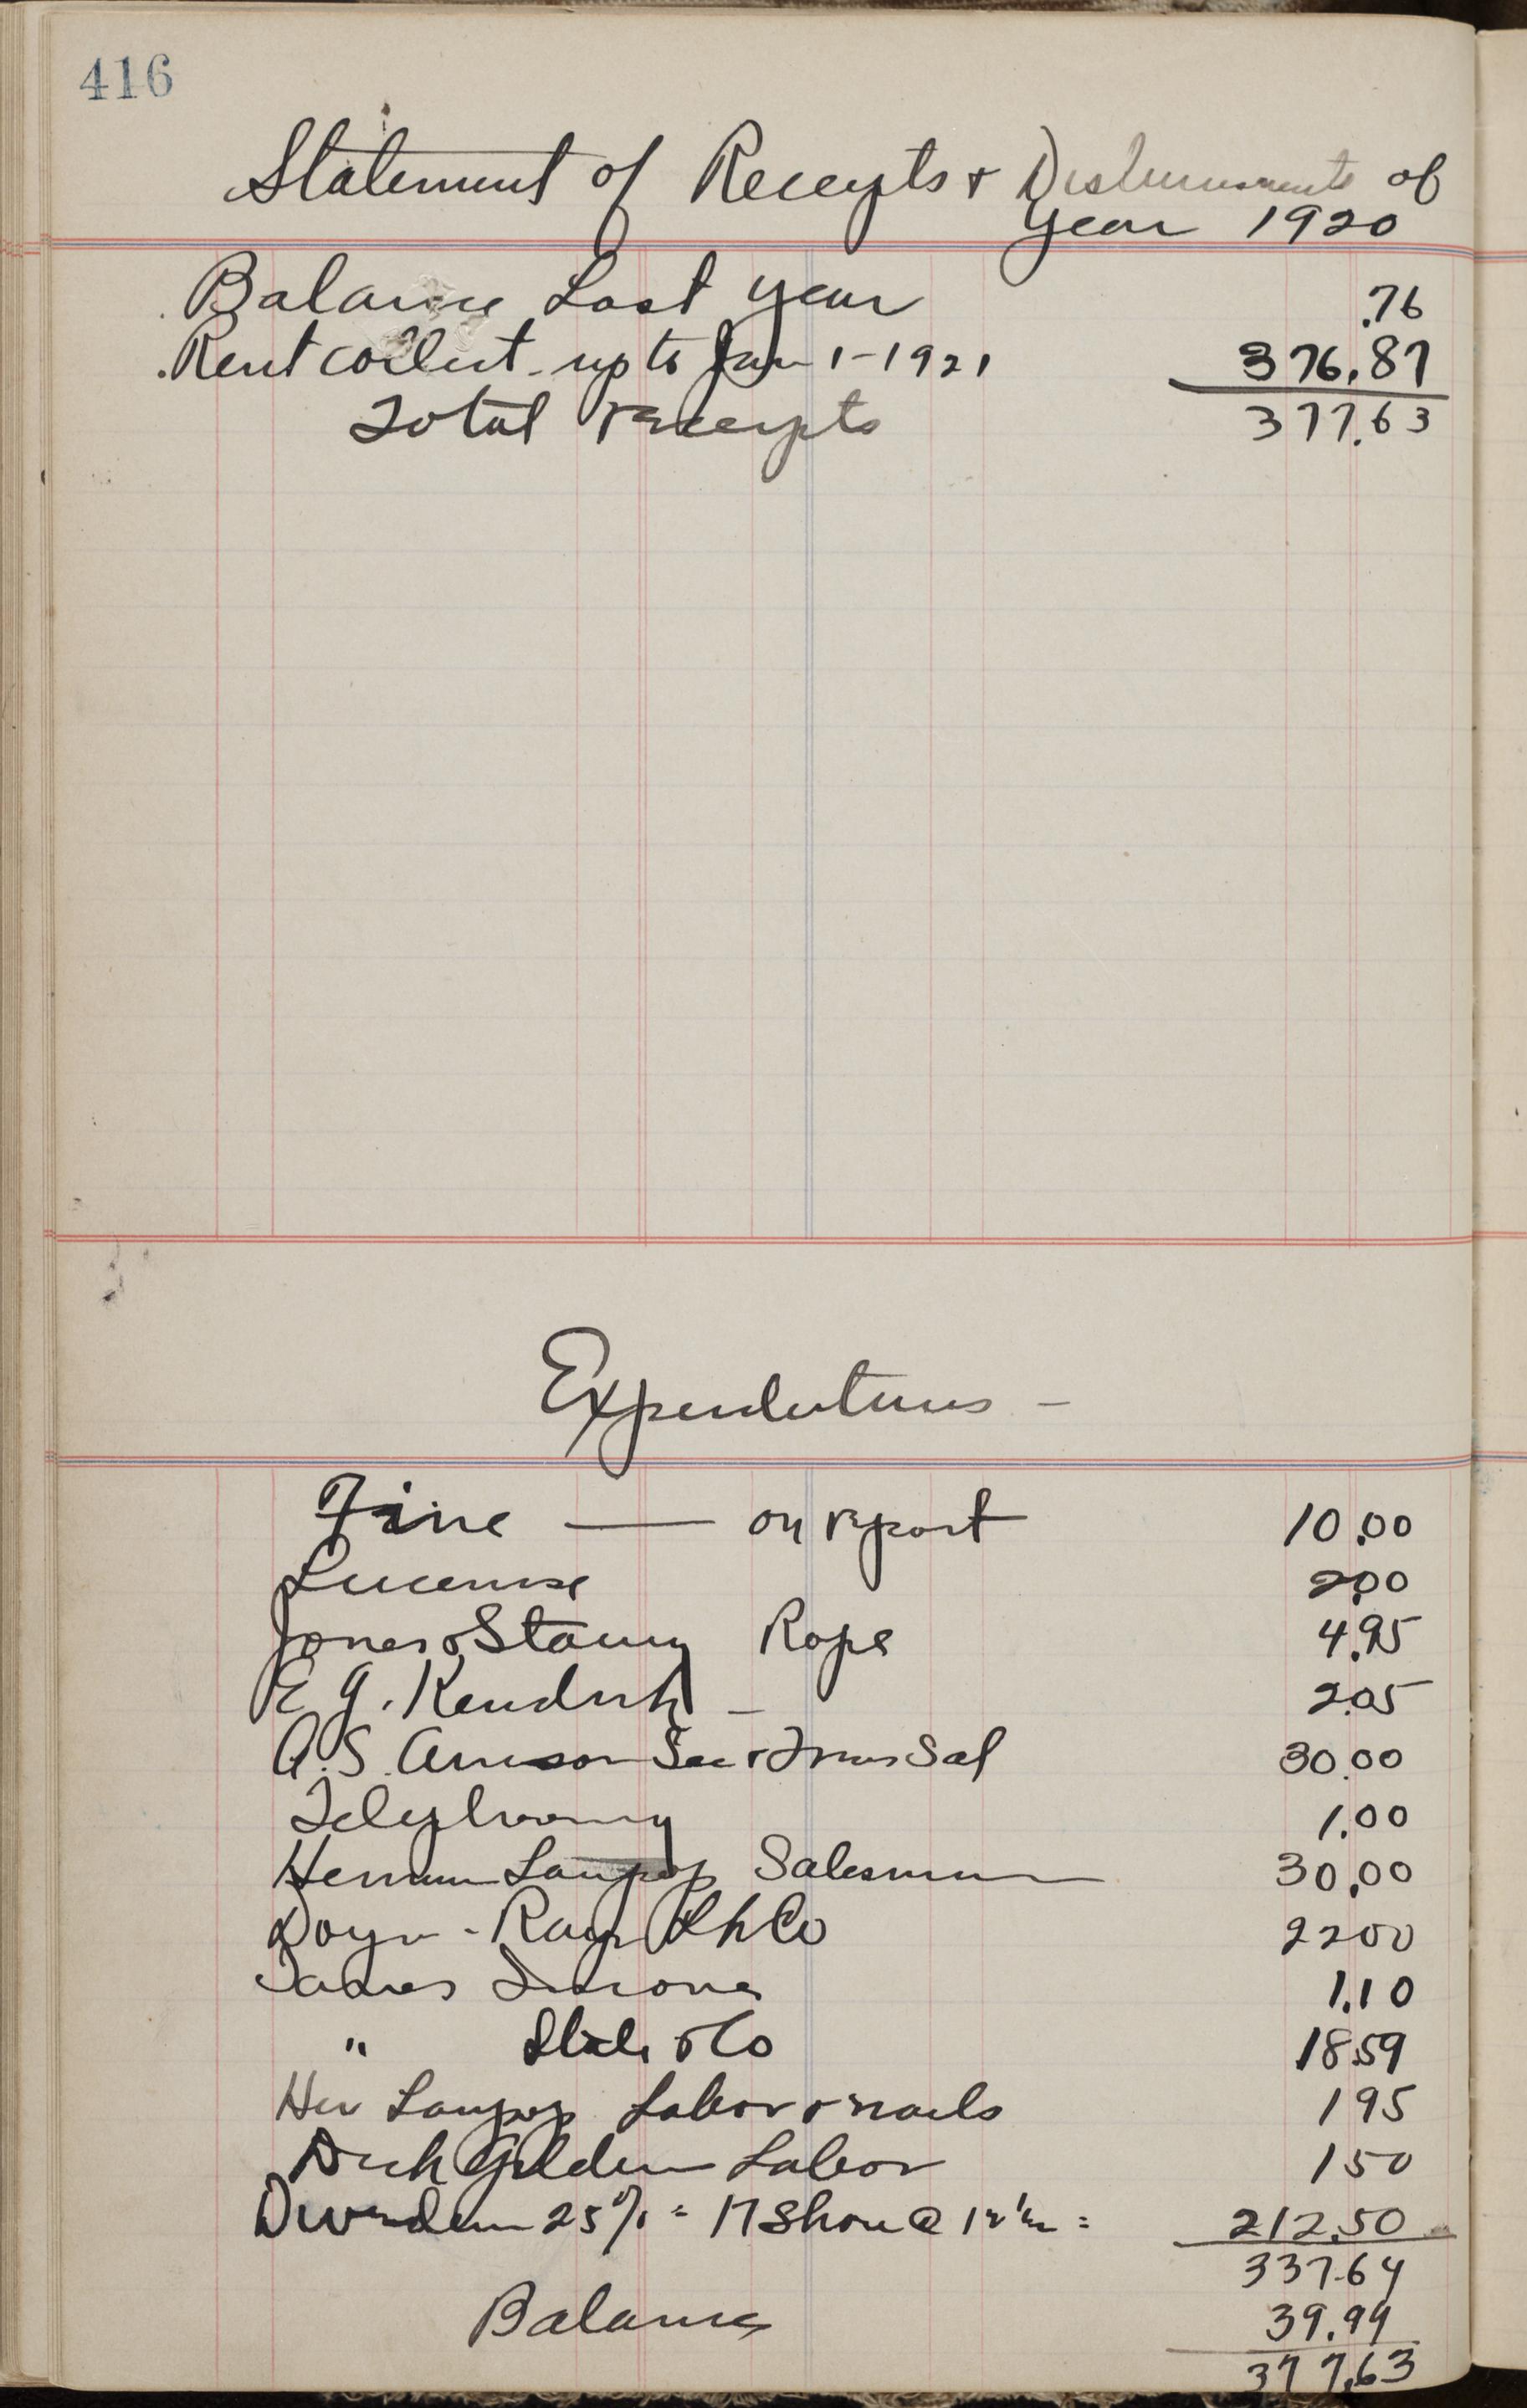 416
Statement of Receipts & Disbursements of
Year 1920
Balance Last year .76
Rent collect. up to Jan 1-1921 376.87
Total receipts 377.63
Expenditures -
Fine — on report 10.00
Licennse 2.00
Jones & Stamy Rope 4.95
E G. Kendrick - 2.05
A.S. Arnison Sec & Treas Sal 30.00
Telephoning 1.00
Herman Salesman 30.00
Doyn - Ray Co 22 00
James 1.10
" & Co 18.59
Her Labor & nails 1 95
Dick Golden Labor 1 50
Dividen 25% = 17 Share @ 12 1/2 = 212.50
337.64
Balance 39.99
377.63